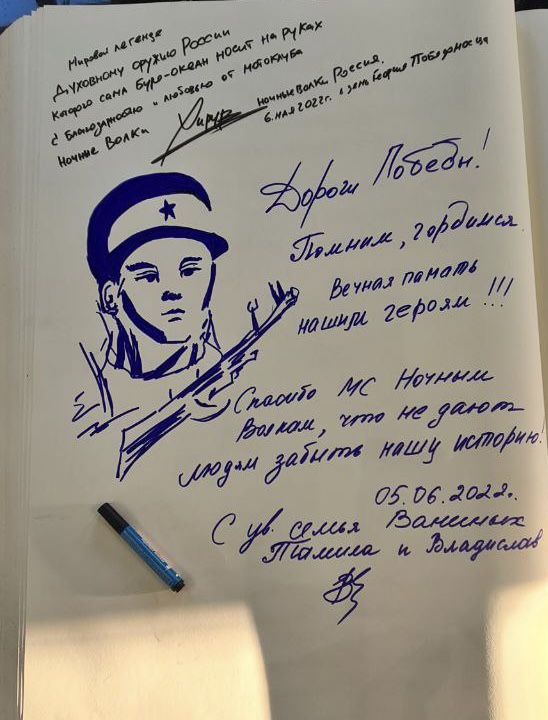 Мировой легенде
Духовному оружию России
которого сама Буря-океан носит на руках
с благодарностью и любовью от мотоклуба
Ночные Волки
Хирург
Ночные Волки Россия.
6. мая 2022г. в день Георгия Победоносца
Дороги Победы!
Помним, гордимся.
Вечная память
нашим героям !!!
Спасибо МС Ночным
Волкам, что не дают
людям забыть нашу историю!
05.06.2022г.
С ув. семья
Тамила и Владислав